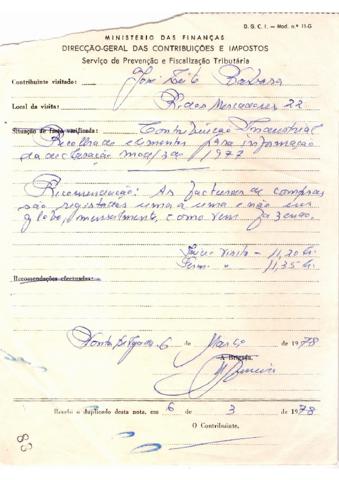 D. G. C. I. — Mod. n.º 11-G
MINISTÉRIO DAS FINANÇAS
DIRECÇÃO-GERAL DAS CONTRIBUIÇÕES E IMPOSTOS
Serviço de Prevenção e Fiscalização Tributária
Contribuinte visitado: José Leite Barbosa
Local da visita: R. dos Mercadores 22
Situação de facto verificada: Contribuição Industrial
Recolha de elementos para informação
da declaração mod/3 de 1977
Recomendação: As facturas de compras
são registadas uma a uma e não em
globo, mensalmente, como vem fazendo.
Início visita — 11,20 h.
Term. " 11,35 h.
Recomendações efectuadas:
Ponta Delgada 6 de Março de 1978
A Brigada,
Recebi o duplicado desta nota, em 6 de 3 de 1978
O Contribuinte,
83